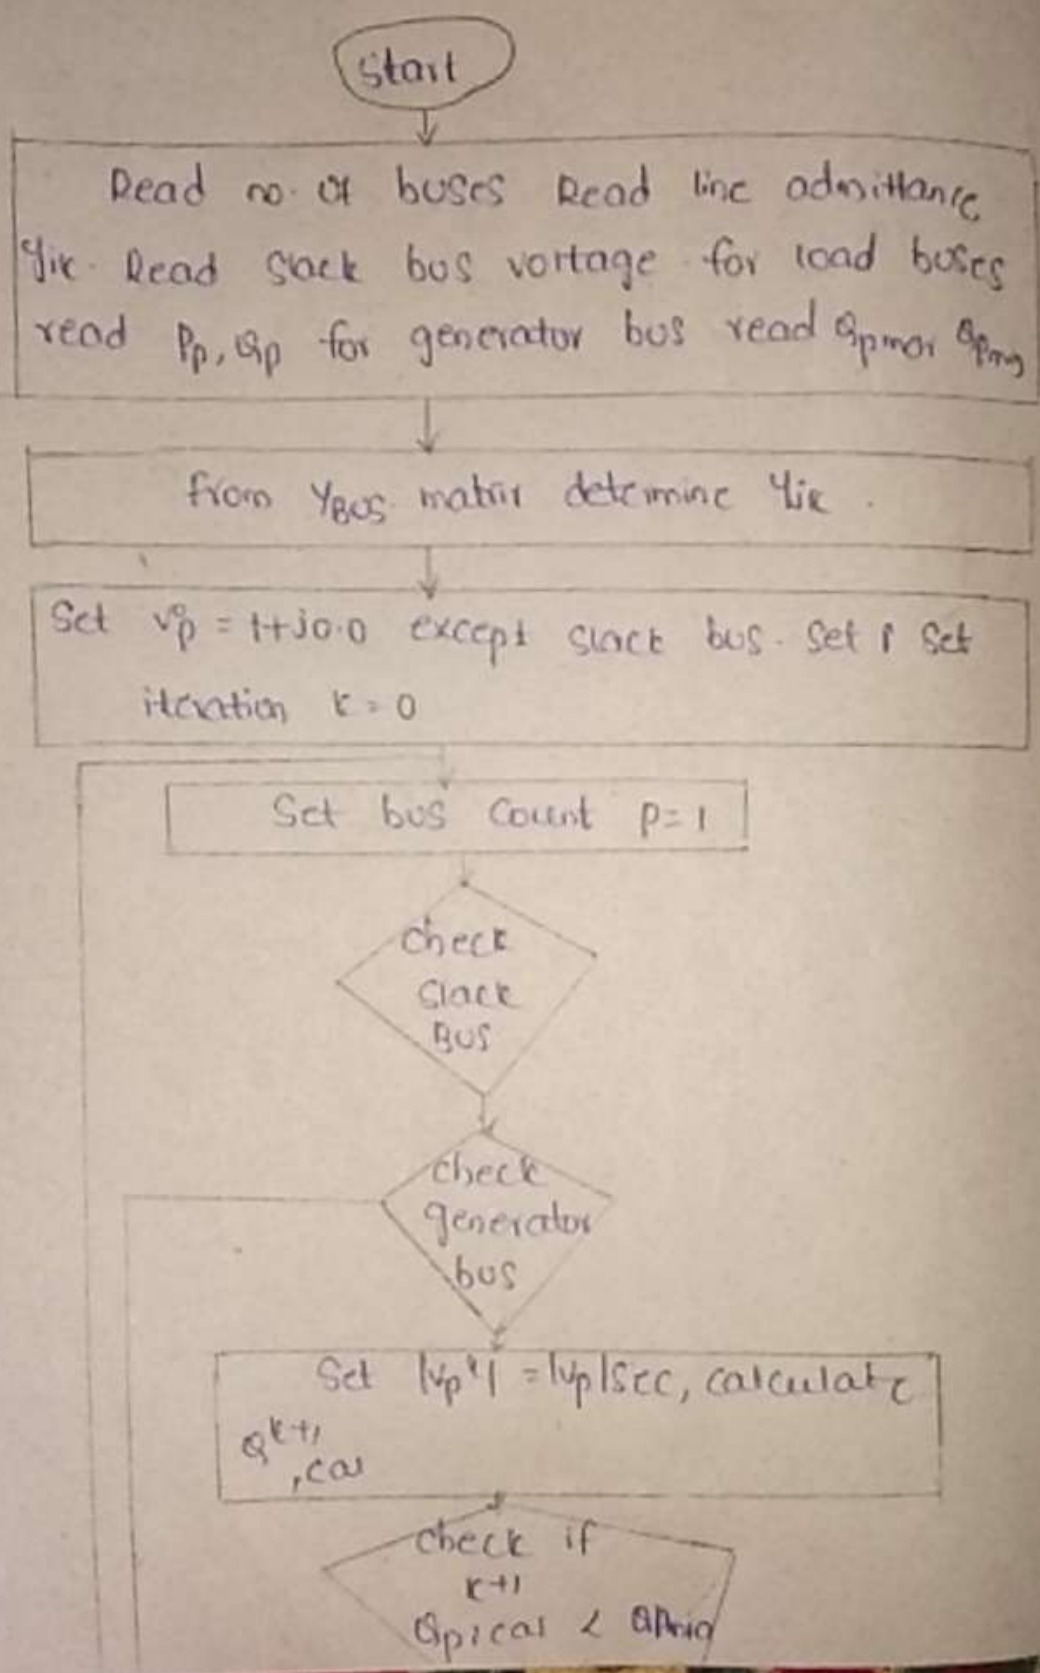 Start
Read no. of buses Read line admittance
Yik. Read slack bus vortage for load buses
read Pp, Qp for generator bus read Qpmax Qpmin
from YBUS matrix determine Yik.
Set V°p = 1+j0.0 except slack bus. Set
iteration k = 0
Set bus count P=1
check
slack
BUS
check
generator
bus
Set |Vp^k| = |Vp|sec, calculate
Q^k+1
,cal
check if
k+1
Qp,cal < Qpmin